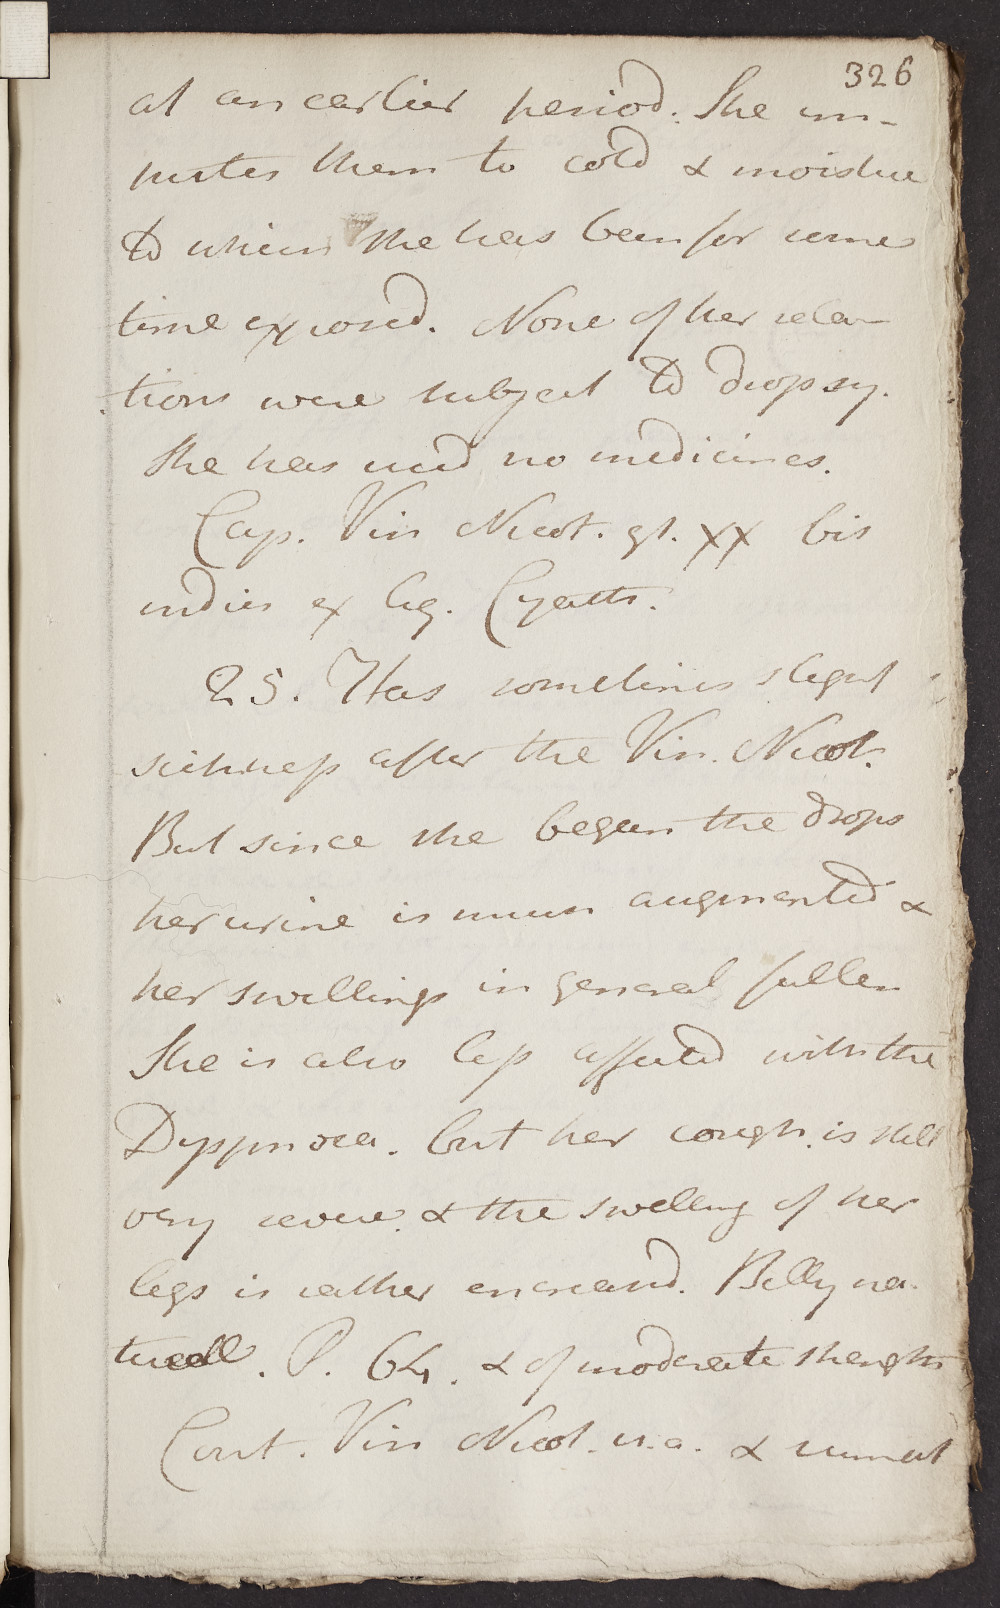 326
at an earlier period. She im-
putes them to cold & moisture
to which she has been for some
time exposed. None of her rela-
tions were subject to dropsy.
She has used no medicines.
Cap. Vin Nicot. gt. XX bis
indies ex Cyath.
25. Has sometimes slight
sickness after the Vin. Nicot.
But since she began the drops
her urine is much augmented &
her swellings in general fallen
She is also less affected with the
Dyspnoea. but her cough is still
very severe & the swelling of her
legs is rather encreased. Belly na-
turall. P. 64. & of moderate strength
Cont. Vin Nicot. u.a. & sumat